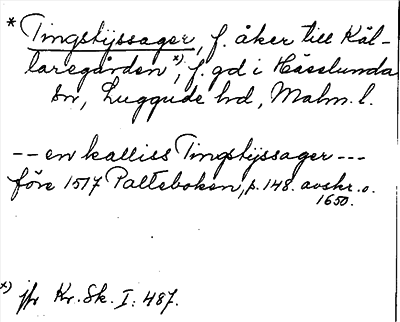 * Tingstijssager, f. åker till Käl-
laregården *), f. gd i Hässlunda
sn, Luggude hd, Malm. l.
-- en kalliss Tingstijssager ---
före 1517 Palteboken, p. 148. avskr. o.
1650.
*) jfr Kr. Sk. I: 487.